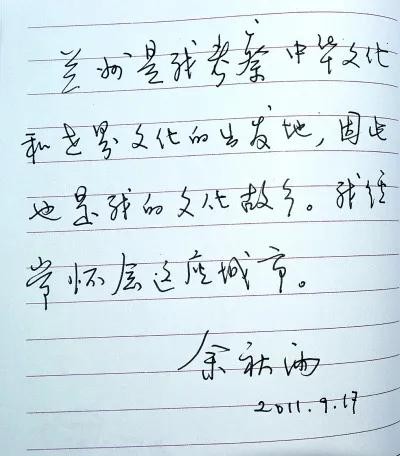 兰州是我考察中华文化
和世界文化的出发地，因此
也是我的文化故乡。我经
常怀念这座城市。
余秋雨
2011.9.17